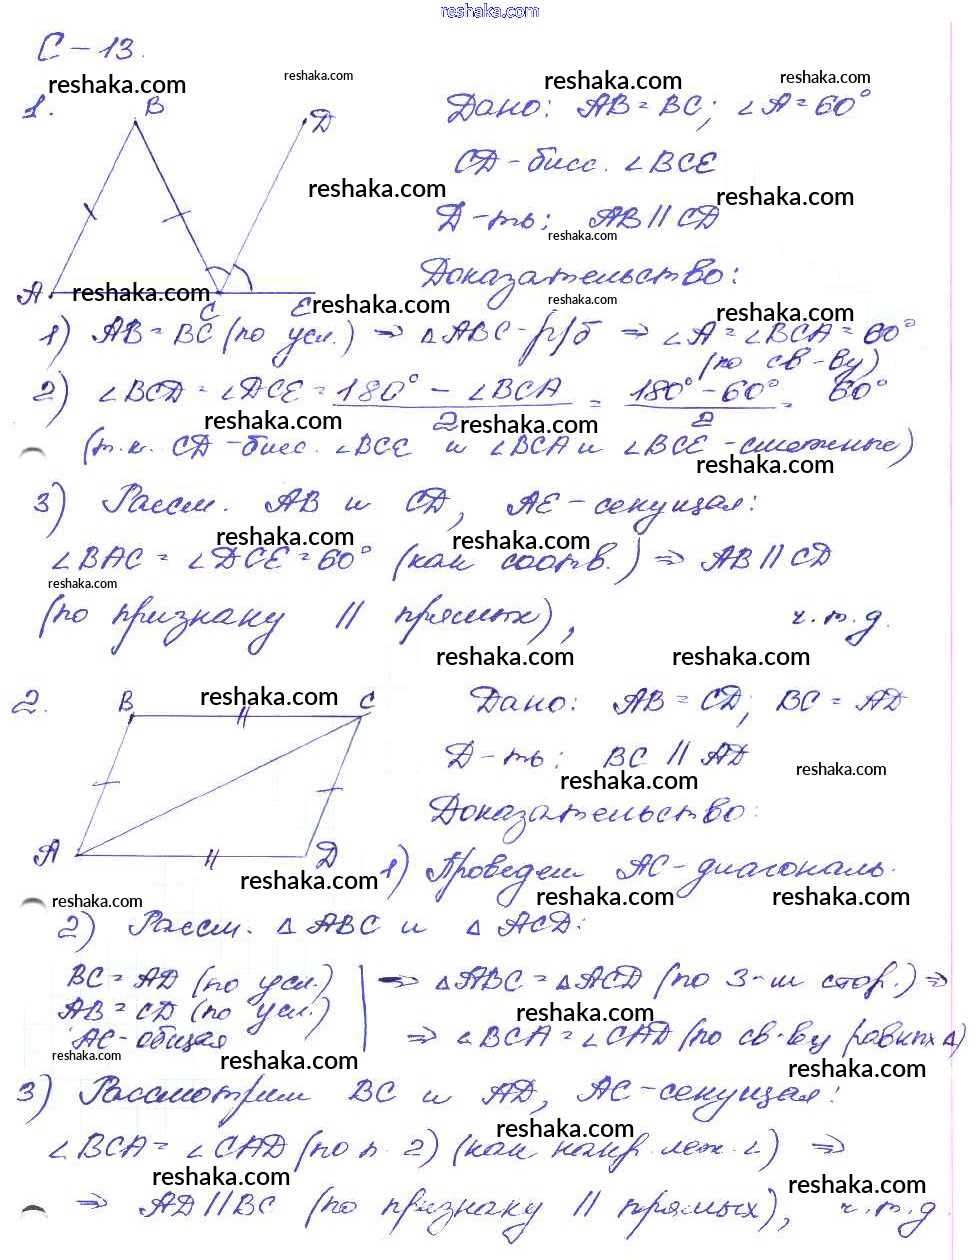 reshaka.com
С-13.
reshaka.com reshaka.com reshaka.com reshaka.com
1. B D Дано: AB = BC; ∠A = 60°
CD - бисс. ∠BCE
reshaka.com reshaka.com
Д-ть; AB || CD
reshaka.com
Доказательство:
A reshaka.com C E reshaka.com reshaka.com reshaka.com
1) AB = BC (по усл.) ⇒ △ABC - р/б ⇒ ∠A = ∠BCA = 60°
(по св-ву)
2) ∠BCD = ∠DCE = (180° - ∠BCA)/2 = (180° - 60°)/2 = 60°
reshaka.com reshaka.com
(т.к. CD - бисс. ∠BCE и ∠BCA и ∠BCE - смежные)
reshaka.com
3) Рассм. AB и CD, AE - секущая:
reshaka.com reshaka.com
∠BAC = ∠DCE = 60° (как соотв.) ⇒ AB || CD
reshaka.com
(по признаку || прямых), ч.т.д.
reshaka.com reshaka.com
2. B reshaka.com C Дано: AB = CD; BC = AD
Д-ть: BC || AD
reshaka.com reshaka.com
Доказательство:
A D 1) Проведем AC - диагональ.
reshaka.com reshaka.com reshaka.com reshaka.com
2) Рассм. △ABC и △ACD:
BC = AD (по усл.) ⇒ △ABC = △ACD (по 3-м стор.) ⇒
AB = CD (по усл.)
reshaka.com
AC - общая ⇒ ∠BCA = ∠CAD (по св-ву равных △)
reshaka.com reshaka.com reshaka.com
3) Рассмотрим BC и AD, AC - секущая:
reshaka.com
∠BCA = ∠CAD (по п. 2) (как накр. леж. ∠) ⇒
reshaka.com reshaka.com
⇒ AD || BC (по признаку || прямых), ч.т.д.